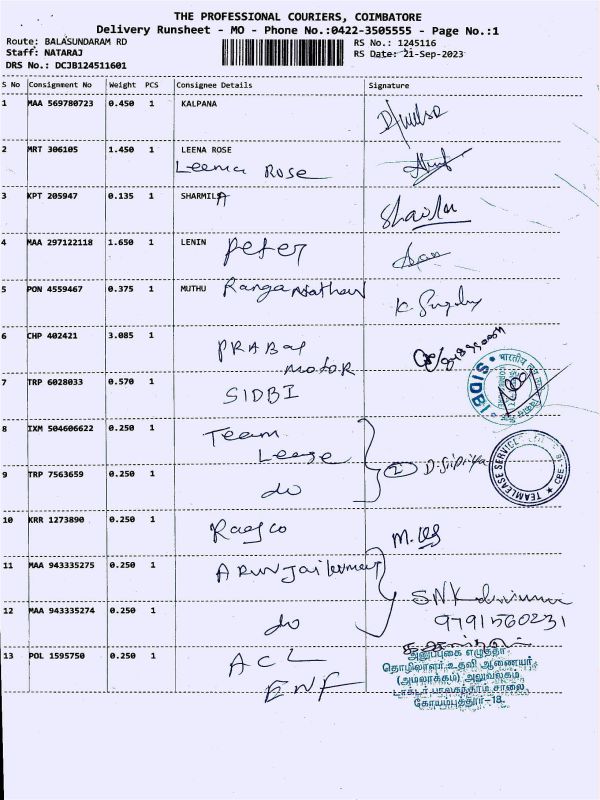 THE PROFESSIONAL COURIERS, COIMBATORE
Delivery Runsheet - MO - Phone No.:0422-3505555 - Page No.:1
Route: BALASUNDARAM RD
Staff: NATARAJ
DRS No.: DCJB124511601
RS No.: 1245116
RS Date: 21-Sep-2023
S No Consignment No Weight PCS Consignee Details Signature
1 MAA 569780723 0.450 1 KALPANA
2 MRT 306105 1.450 1 LEENA ROSE
Leema Rose
3 KPT 205947 0.135 1 SHARMILA
4 MAA 297122118 1.650 1 LENIN Peter
5 PON 4559467 0.375 1 MUTHU Ranganathan
6 CHP 402421 3.085 1 PRABal
motor
7 TRP 6028033 0.570 1 SIDBI
SIDBI
8 IXM 504606622 0.250 1 Team
Lease
TEAMLEASE SERVICE
CBE
9 TRP 7563659 0.250 1 do
2
10 KRR 1273890 0.250 1 M.
11 MAA 943335275 0.250 1 ARUN
12 MAA 943335274 0.250 1 do
SNK
9791560231
13 POL 1595750 0.250 1 ACL
ENF
அனுப்புகை எழுத்தர்
தொழிலாளர் உதவி ஆணையர்
(அமலாக்கம்) அலுவலகம்
டாக்டர் பாலசுந்தரம் சாலை,
கோயமபுத்தூர்-18.